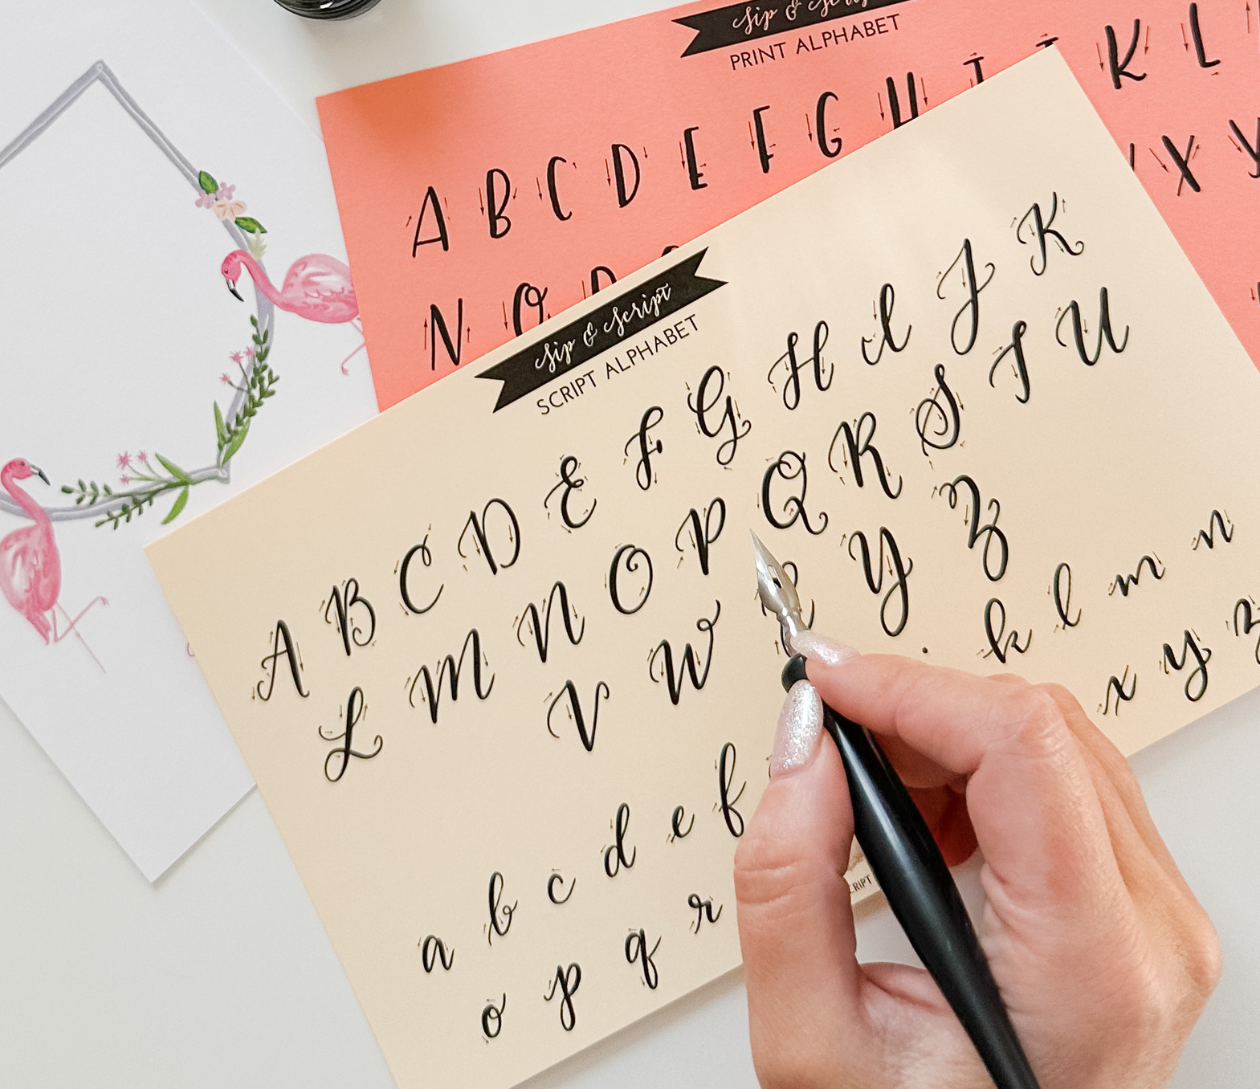 Sip & Script
PRINT ALPHABET
A B C D E F G H I K L
N O X Y
Sip & Script
SCRIPT ALPHABET
A B C D E F G H I J K
L M N O P Q R S T U
V W Y Z
a b c d e f k l m n
o p q r x y z
SCRIPT